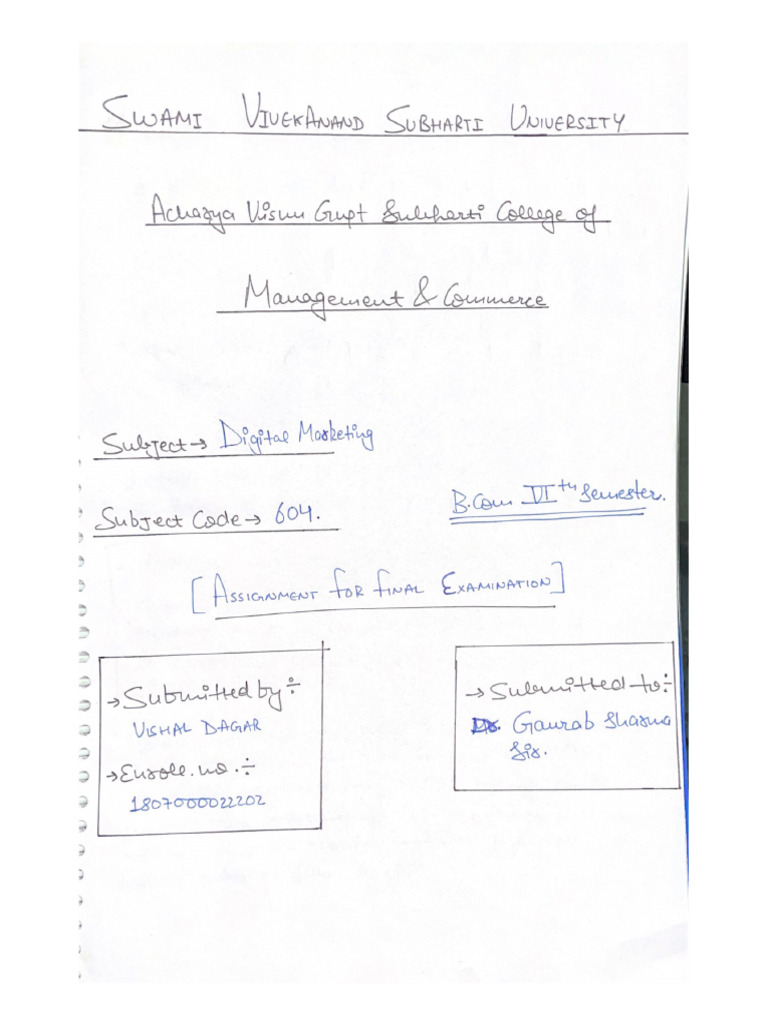 SWAMI VIVEKANAND SUBHARTI UNIVERSITY
Acharya Visnu Gupt Subharti College of
Management & Commerce
Subject → Digital Marketing
Subject Code → 604.
B.Com VIth Semester.
[ASSIGNMENT FOR FINAL EXAMINATION]
→ Submitted by ÷
VISHAL DAGAR
→ Enroll. no. ÷
1807000022202
→ Submitted to ÷
Dr. Gaurab Sharma
Sir.